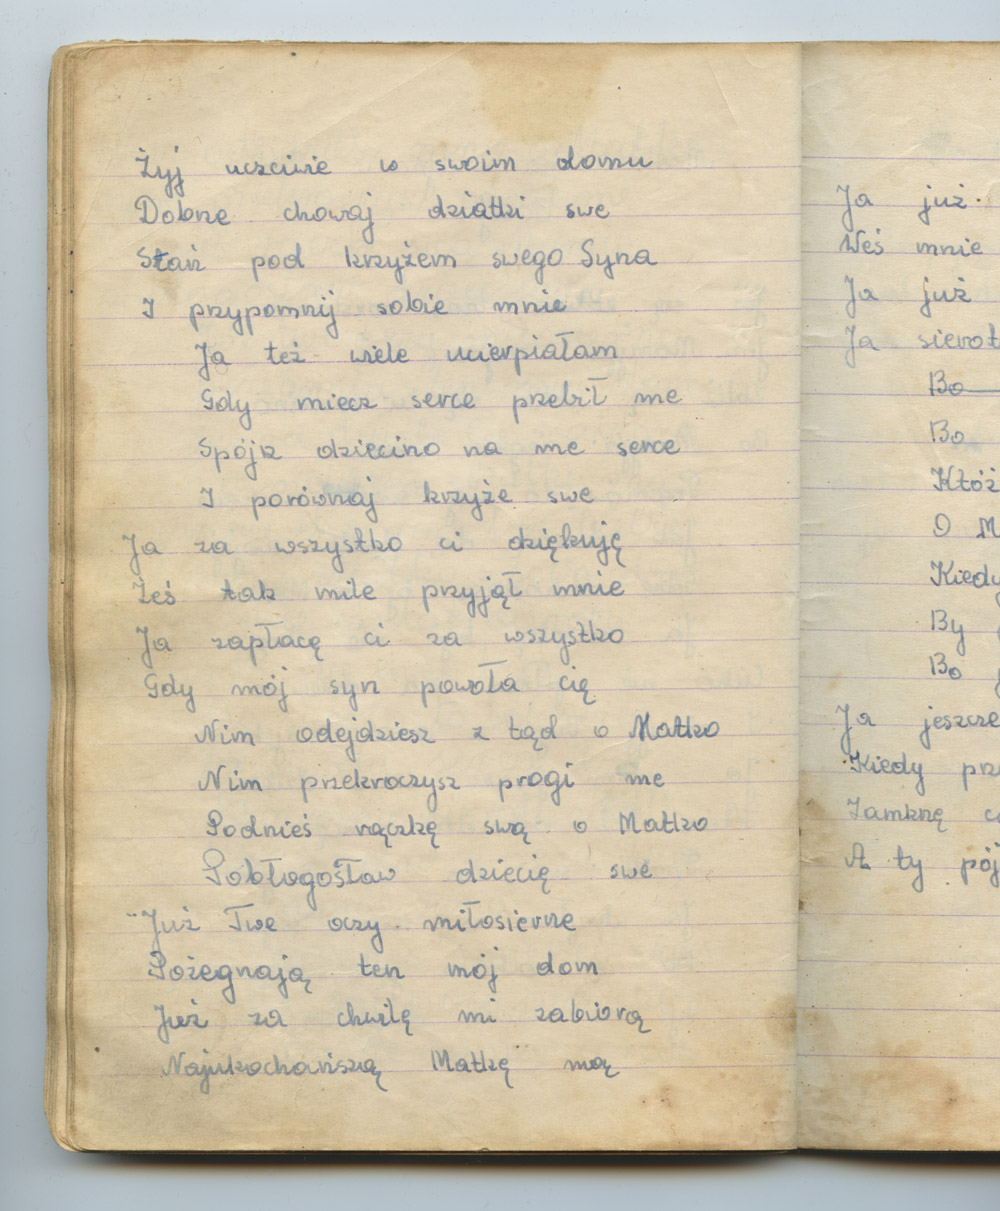 Żyj uczciwie w swoim domu
Dobrze chowaj dziatki swe
Stań pod krzyżem swego Syna
I przypomnij sobie mnie
Ja też wiele ucierpiałam
Gdy miecz serce przebił me
Spójrz dziecino na me serce
I porównaj krzyże swe
Ja za wszystko ci dziękuję
Żeś tak mile przyjął mnie
Ja zapłacę ci za wszystko
Gdy mój syn powoła cię
Nim odejdziesz z tąd o Matko
Nim przekroczysz progi me
Podnieś rączkę swą o Matko
Pobłogosław dziecię swe
Już Twe oczy miłosierne
Pożegnają ten mój dom
Już za chwilę mi zabiorą
Najukochańszą Matkę mą
Ja już
Weś mnie
Ja już
Ja sierot
Bo
Bo
Któż
O M
Kiedy
By
Bo
Ja jeszcze
Kiedy prz
Zamknę
A ty pój